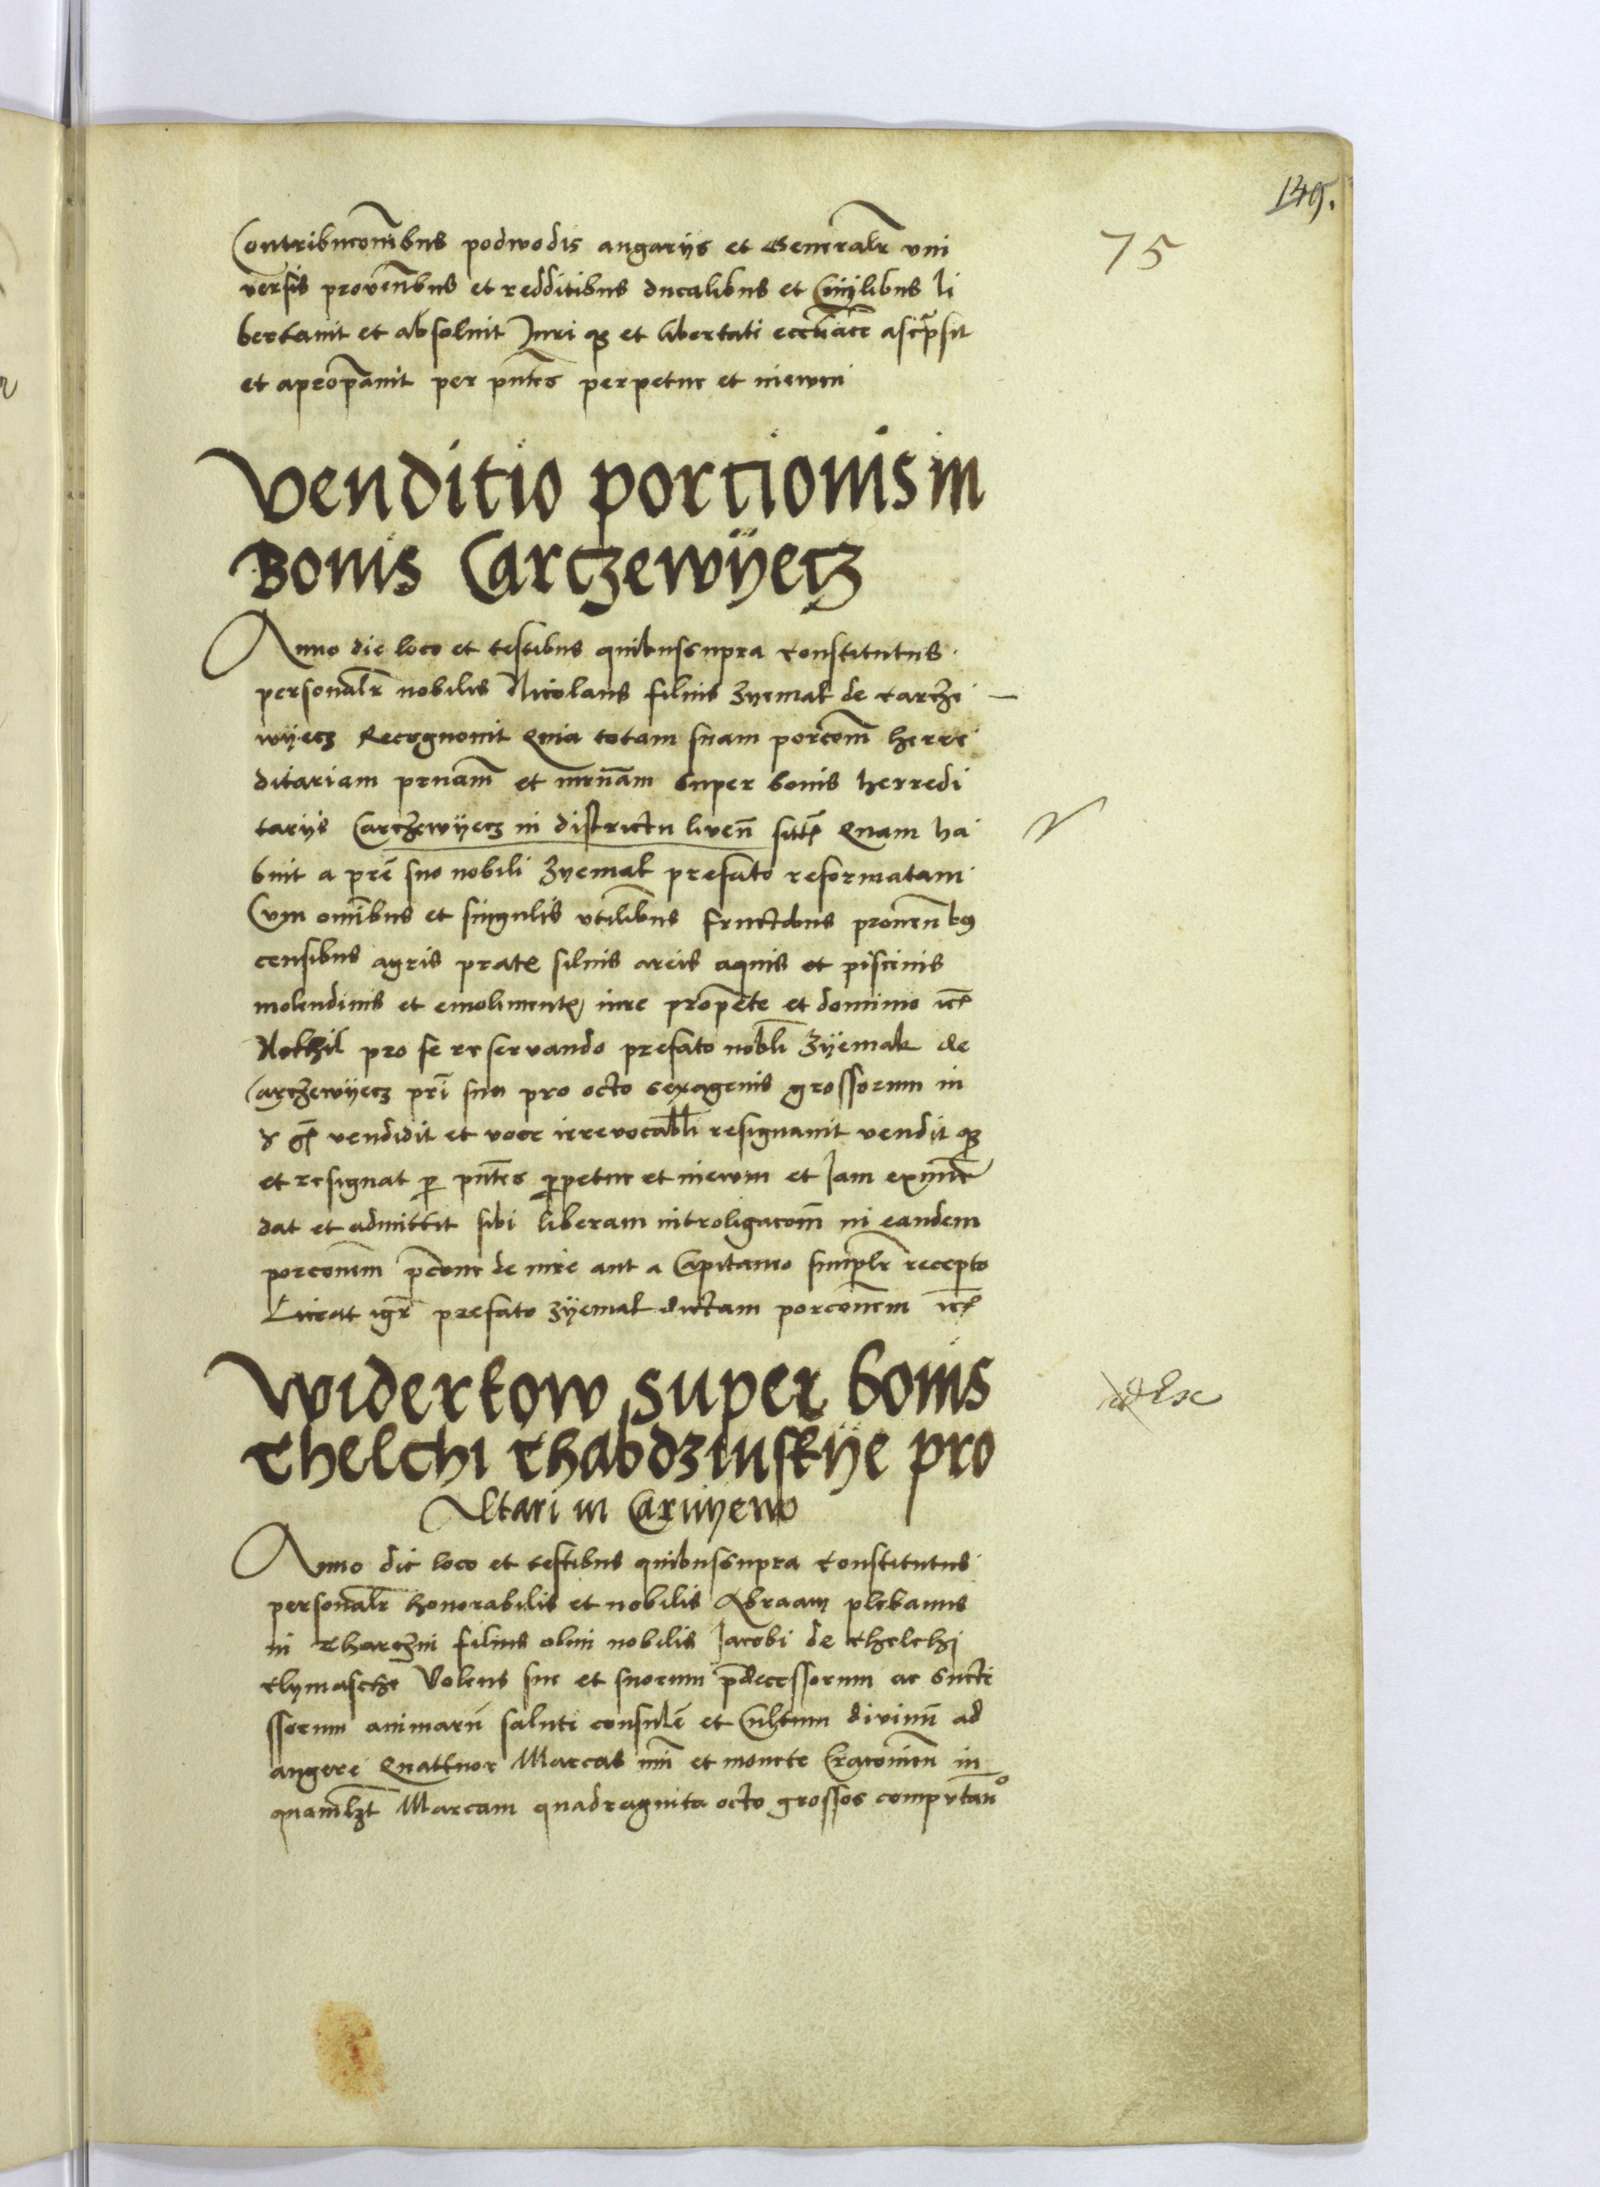 149.
75
Contribucom̄bus podwodis angarijs et Generalr̄ vni
versis proven̄bus et redditibus ducalibus et Civilibus li
bertauit et absoluit Juri qȝ et libertati eccl̄iastice ascripsit
et apropāuit per pn̄tes perpetue et inewm
Venditio portionis in
Bonis Carczewyecz
Anno die loco et testibus quibussupra Constitutus
personalr̄ nobilis Nicolaus filius Zyemak de Carcze
wyecz Recognouit Quia totam suam porcom̄ herre
ditariam pr̄nam̄ et mr̄nam super bonis herredi
tarijs Carczewyecz in districtu liven̄ sitis Quam ha
buit a prē suo nobili Zyemak prefato reformatam
Cum om̄ibus et singulis vtilibus fructibus prouen̄ bus
censibus agris pratis siluis areis aquis et piscinis
molendinis et emolimentis iure propetē et dominio
Nichil pro se reservando prefato nobli Zyemak de
Carczewyecz pr̄i suo pro octo sexagenis grossorum in
gͦ vendidit et voce irrevocabli resignauit vendit qȝ
et resignat p pn̄tes ppetue et inewm et Jam exnunc
dat et admittit sibi liberam introligacom̄ in eandem
porconem p̄cone de iure aut a Capitaneo simplr̄ recepto
Liceat igr̄ prefato Zyemak dictam porconem
Widerkow super bonis
Thelchi Thabdzinskye pro
Altari in Czruyewo
Anno die loco et testibus quibussupra Constitutus
personalr̄ honorabilis et nobilis Abraam plebanus
in Tharczin filius olim nobilis Jacobi de Thelchi
Clymasche Volens sue et suorum p̄decessorum ac succe
ssorum animarū saluti consulē et Cultum divinū ad
augere Quattuor Marcas et monete Cracouien̄ in
quamlȝt Marcam quadraginta octo grossos computan̄o